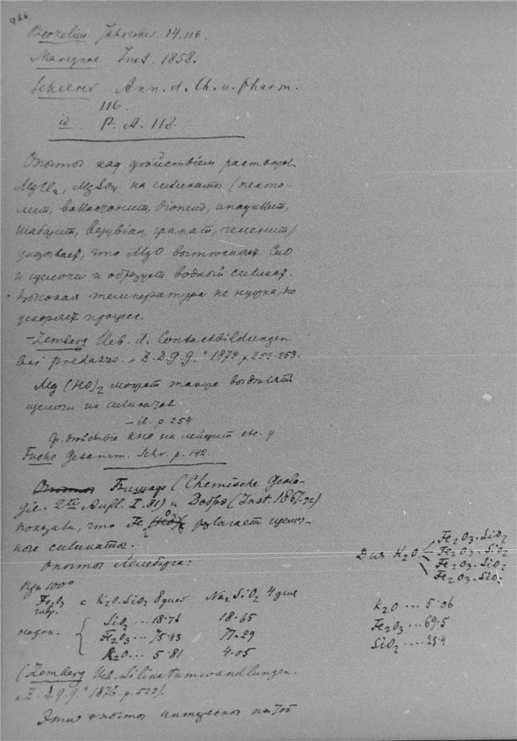 Berzelius Jahresber. 14.116.
Marignac Inst. 1858.
Scheerer Ann. d. Ch. u. Pharm.
116.
id. P. A. 118.
Опыты над действiем растворов
MgCl₂, MgSO₄ на силикаты (пекто-
лит, волластонит, апофиллит,
шабазит, везувiан, гранат,
указывает, что MgO вытесняет CaO
и щелочи и образует водный силикат.
Высокая температура не нужна, но
ускоряет процес.
– Lemberg Ueb. d. Contactbildungen
bei Predazzo. „Z. D. G. G." 1872. p. 252-253.
Mg(HO)₂ может также вытеснять
щелочи из силикатов.
– ib. p. 254
Ср. на лейцит etc. y
Fuchs Gesamm. Schr. p. 142.
Бишоф (Chemische Geolo-
gie. 2te Aufl. I. 81) и Добрэ (Inst. 1867.
показали, что Fe₂ разлагает щелоч-
ные силикаты.
Опыты Лемберга:
При 100°
Fe₂O₃ с K₂O.SiO₂ 8 дней Na₂SiO₂ 4 дня
SiO₂ ... 18.76 18.65
Fe₂O₃ ... 75.43 77.29
K₂O ... 5.81 4.05
(Lemberg Ueb. Silicatumwandlungen.
„Z. D. G. G." 1876. p. 522).
Эти опыты интересны
Для K₂O
Fe₂O₃.SiO₂
Fe₂O₃.SiO₂
Fe₂O₃.SiO₂
Fe₂O₃.SiO₂
K₂O ... 5.06
Fe₂O₃ ... 69.5
SiO₂ ... 25.4